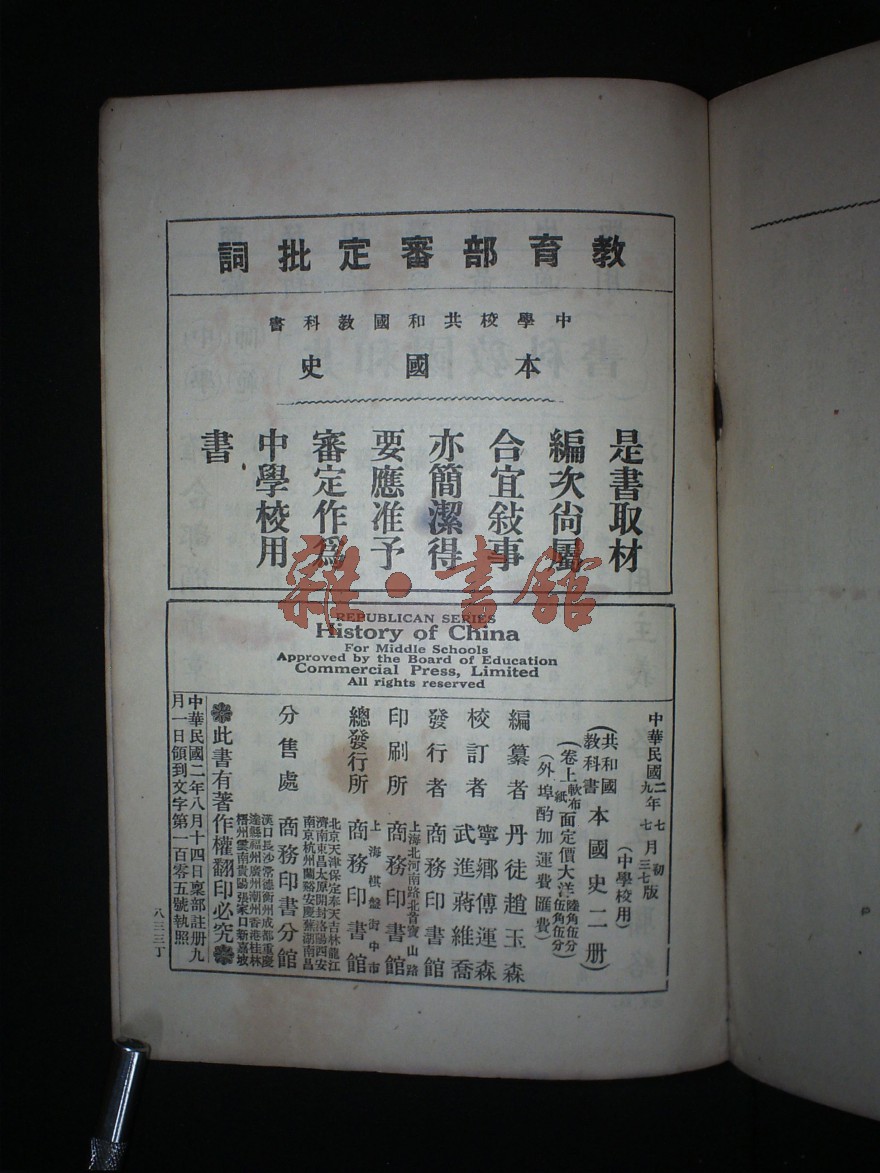 教育部審定批詞
中學校共和國教科書
本國史
是書取材
編次尙屬
合宜敍事
亦簡潔得
要應准予
審定作爲
中學校用
書
雜·書館
REPUBLICAN SERIES
History of China
For Middle Schools
Approved by the Board of Education
Commercial Press, Limited
All rights reserved
中華民國二年七月初版
九年七月三七版
(中學校用)
(共和國教科書本國史二册)
(卷上軟布面定價大洋陸角伍分)
紙 伍角伍分
(外埠酌加運費匯費)
編纂者 丹徒趙玉森
校訂者 寧鄉傅運森
武進蔣維喬
發行者 商務印書館
印刷所 上海北河南路北首寶山路
商務印書館
總發行所 上海棋盤街中市
商務印書館
分售處 商務印書分館
北京天津保定奉天吉林龍江
濟南東昌太原開封洛陽西安
南京杭州蘭谿安慶蕪湖南昌
漢口長沙常德衡州成都重慶
達縣福州廣州潮州香港桂林
梧州雲南貴陽張家口新嘉坡
此書有著作權翻印必究
中華民國二年八月十四日稟部註册九
月一日領到文字第一百零五號執照
八三三丁